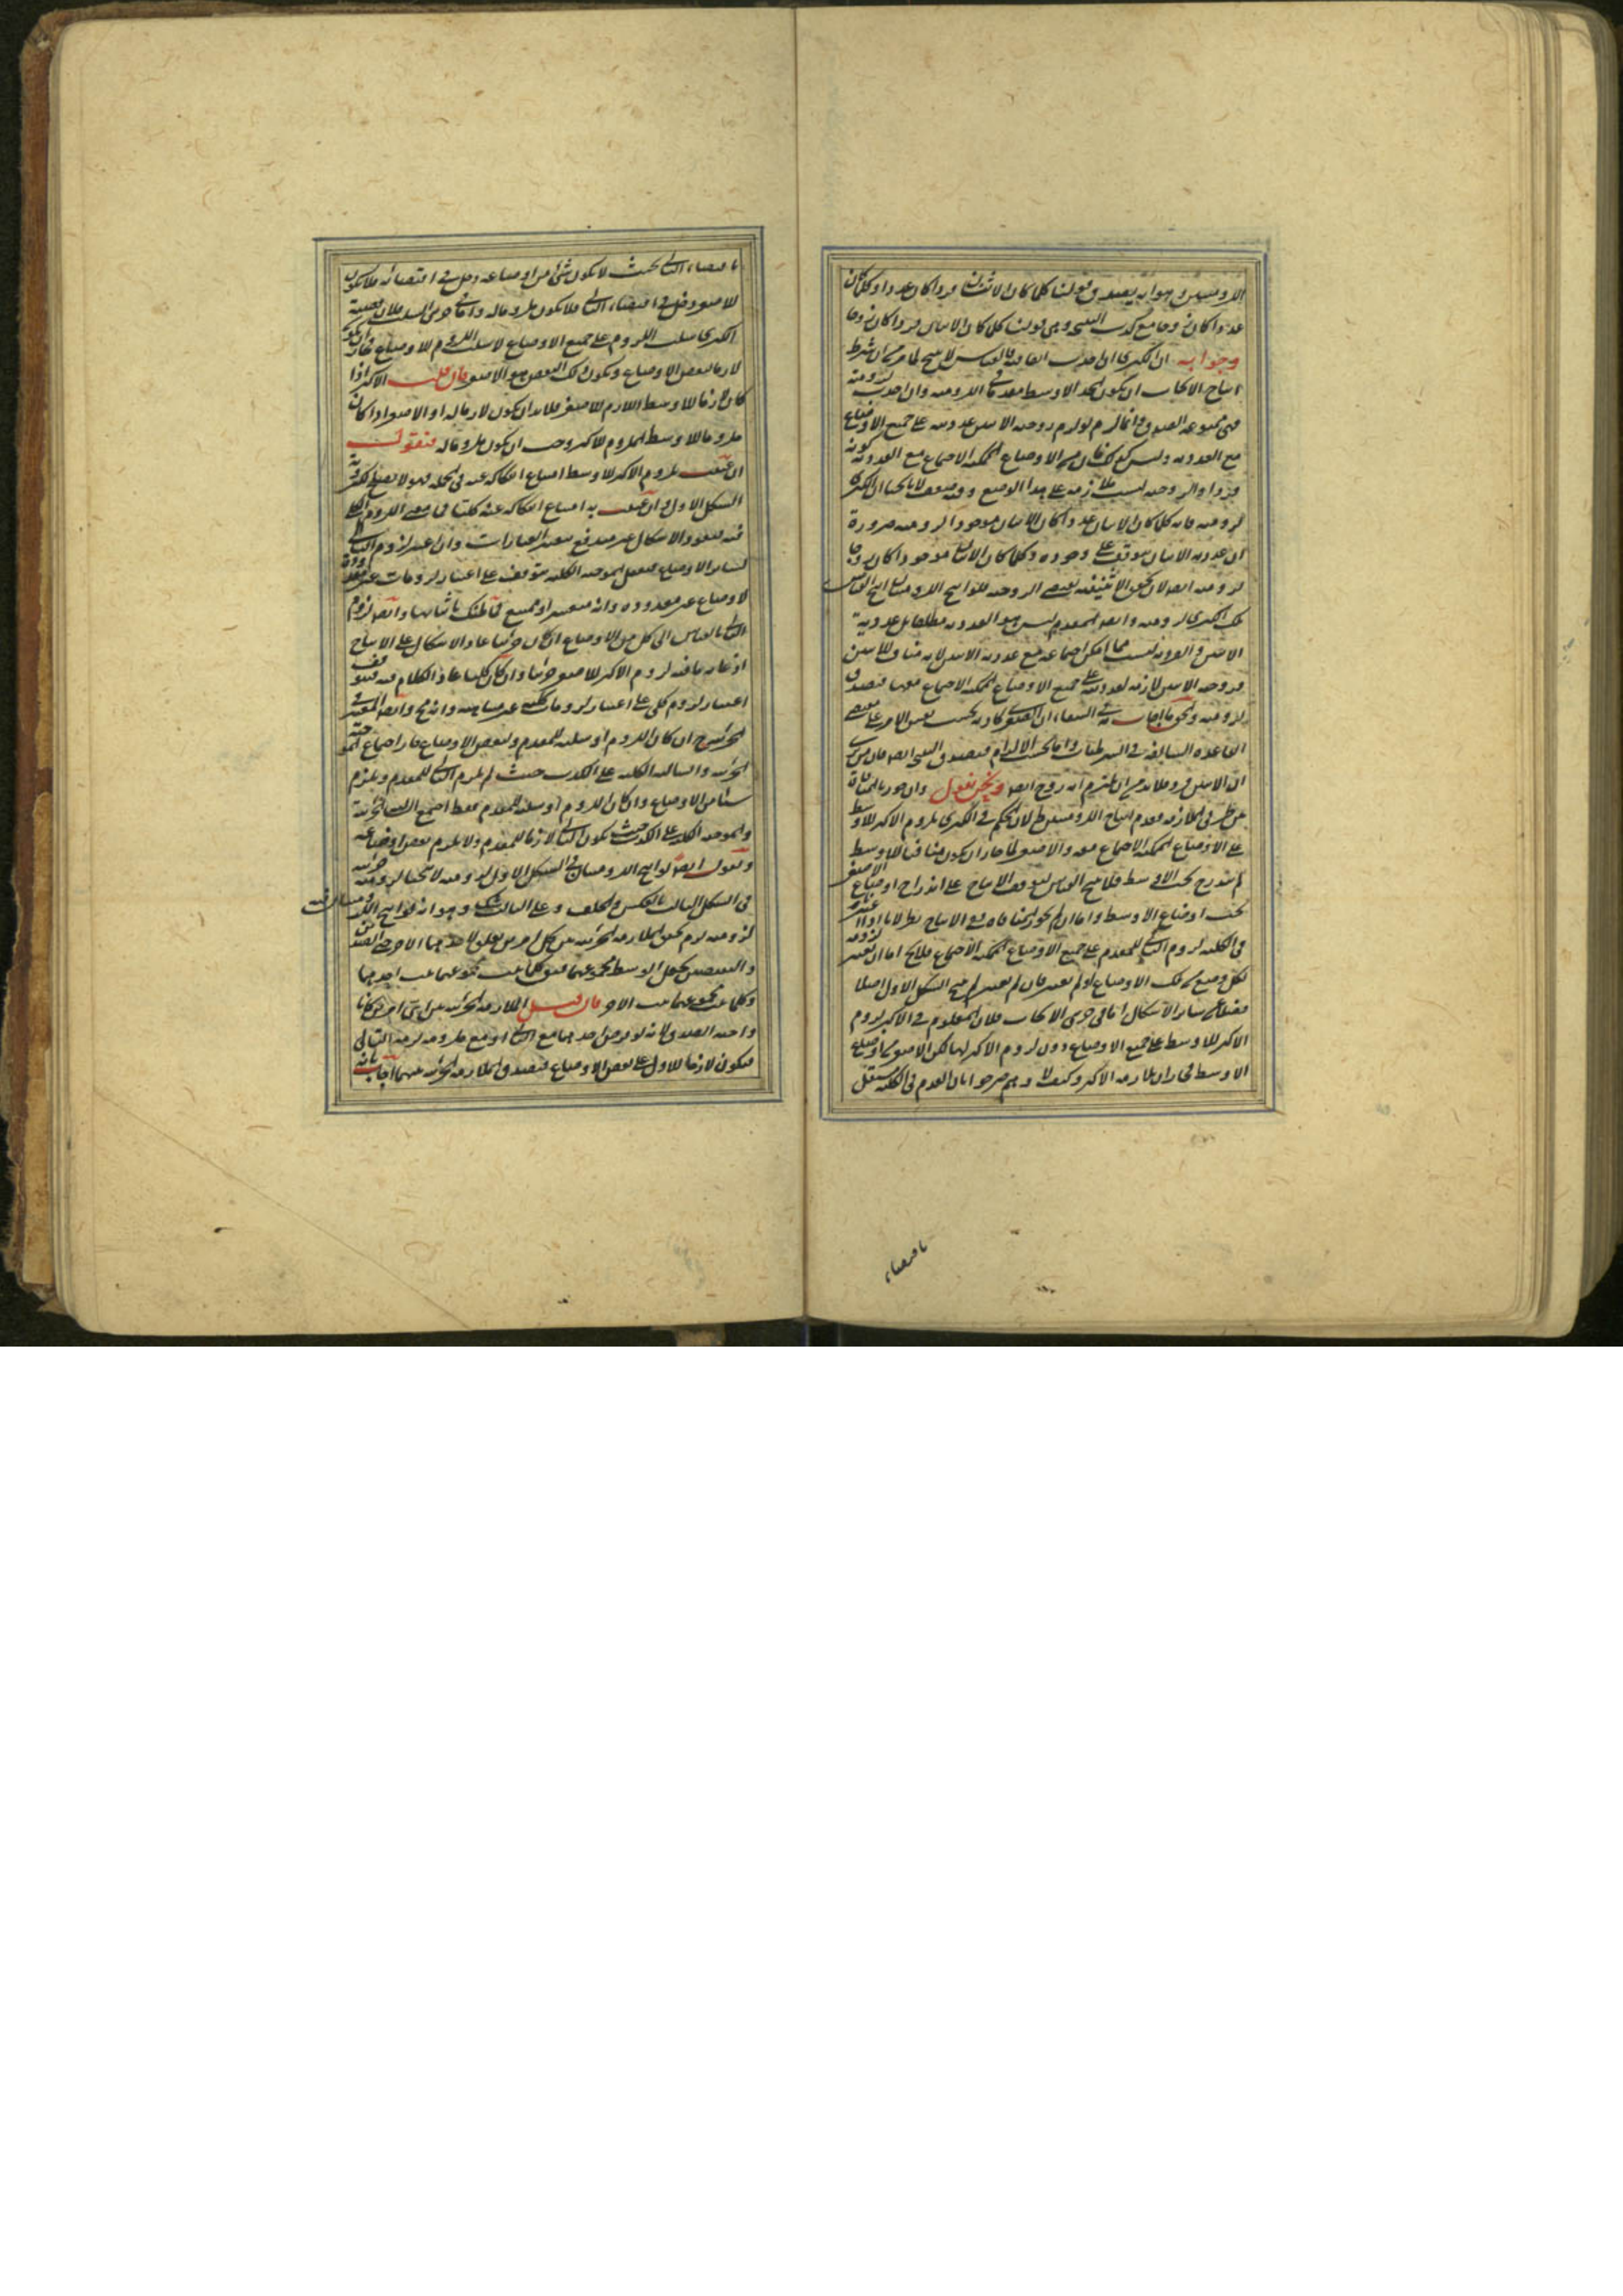 اللزوميتين وهو انه يصدق قولنا كلما كان الاثنان فردا كان عددا وكلما كان
عددا كان زوجا مع كذب النتيجة وهى قولنا كلما كان الاثنان فردا كان زوجا
وجوابه ان الكبرى ان اخذت اتفاقية فالقياس لا ينتج لما مر من ان شرط
انتاج الايجاب ان يكون الحد الاوسط مقدما فى اللزومية وان اخذت لزومية
فهى ممنوعة الصدق وانما لزم لو لزم زوجية الاثنين عدديته على جميع الاوضاع
مع العددية وليس كذلك فان من الاوضاع الممكنة الاجتماع مع العددية كونه
فردا والزوجية ليست لازمة على هذا الوضع وفيه ضعف لانا نختار ان الكبرى
لزومية فانه كلما كان الاثنان عددا كان الاثنان موجودا لزومية ضرورة
ان عددية الاثنان يتوقف على وجوده وكلما كان الاثنان موجودا كان زوجا
لزومية ايضا لان تحقق الاثنينية يقتضى الزوجية فلو انتج اللزوميتان انتج القياس
تلك الكبرى لزومية وايضا المقدم ليس هو العددية مطلقا بل عددية
الاثنين والفردية ليست مما امكن اجتماعه مع عددية الاثنين لانه مناف للاثنين
فزوجية الاثنين لازمة لعدديته على جميع الاوضاع الممكنة الاجتماع معها فتصدق
لزومية والحق ما اجاب به فى الشفاء ان الصغرى كاذبة بحسب نفس الامر على مقتضى
القاعدة السابقة فى الشرطيات واما بحسب الالزام فتصدق النتيجة ايضا فان من يرى
ان الاثنين فرد فلابد من ان يلتزم انه زوج ايضا ونحن نقول وان جوزنا المنافاة
بين طرفى الملازمة فعدم انتاج اللزوميتين ظ لان الحكم فى الكبرى بلزوم الاكبر للاوسط
على الاوضاع الممكنة الاجتماع معه والاصغر لما جاز ان يكون منافيا للاوسط
لم يندرج تحت الاوسط فلا ينتج القياس لتوقف الانتاج على اندراج اوضاع الاصغر
تحت اوضاع الاوسط واما ان لم نجوز المنافاة ففى الانتاج نظر لانا اذا اعتبرنا
فى الكلية لزوم التالى للمقدم على جميع الاوضاع الممكنة الاجتماع فلا يخ اما ان نعتبر لزومه
لكل وضع من تلك الاوضاع او لم نعتبر فان لم نعتبر لم ينتج الشكل الاول اصلا
فضلا عن سائر الاشكال اما فى ضربى الايجاب فلان المعلوم فى الاكبر لزوم
الاكبر للاوسط على جميع الاوضاع دون لزوم الاكبر لها لكن الاصغر من اوضاع
الاوسط فجاز ان لا يلزمه الاكبر وكيف لا وهم صرحوا بان المقدم فى الكلية مستقل
باقتضاء
باقتضاء التالى بحيث لا يكون شئ من اوضاعه دخل فى اقتضائه فلا يكون
للاصغر دخل فى اقتضاء التالى فلا يكون ملزوما له واما فى ضربى السلب فلان قضية
الكبرى سلب اللزوم على جميع الاوضاع لا سلب اللزوم للاوضاع فجاز ان يكون
لازما لبعض الاوضاع ويكون ذلك البعض هو الاصغر فان قلت الاكبر اذا
كان لازما للاوسط اللازم للاصغر فلابد ان يكون لازما له او الاصغر اذا كان
ملزوما للاوسط الملزوم للاكبر وجب ان يكون ملزوما له فنقول
ان عنيت بلزوم الاكبر للاوسط امتناع انفكاكه عنه فى الجملة فهو لا يصلح لكبروية
الشكل الاول وان عنيت به امتناع انفكاكه عنه كليا فما معنى اللزوم الكلى
فيه فيعود الاشكال غير مندفع بتغيير العبارات وان اعتبر لزوم التالى
لسائر الاوضاع فتعقل الموجبة الكلية متوقف على اعتبار لزومات غير معدودة
لاوضاع غير معدودة وانه متعسر او ممتنع فما ظنك باثباتها وايضا لزوم
التالى بالقياس الى كل من الاوضاع ان كان جزئيا عاد الاشكال على الانتاج
اذ غاية ما فيه لزوم الاكبر للاصغر جزئيا وان كان كليا عاد الكلام فيه فيتوقف
اعتبار لزوم كلى على اعتبار لزومات كلية غير متناهية وانه مح وايضا المعتبر فى
الجزئيتين ان كان اللزوم او سلبه للمقدم ولبعض الاوضاع جاز اجتماع الموجبة
الجزئية والسالبة الكلية على الكذب حيث لم يلزم التالى للمقدم ويلزم
شيئا من الاوضاع وان كان اللزوم او سلبه للمقدم فقط اجتمع السالبة الجزئية
والموجبة الكلية على الكذب حيث يكون التالى لازما للمقدم ولا يلزم بعض اوضاعه
ونقول ايضا لو انتج اللزوميتان فى الشكل الاول لزومية لانتجتا لزومية جزئية
فى الشكل الثالث بالعكس والخلف وعلى الثالث شك وهو انه لو انتج اللزوميتان فيه
لزومية لزم تحقق الملازمة الجزئية بين كل امرين لا تعلق لاحدهما بالاخر حتى الضدين
والنقيضين بجعل الاوسط مجموعهما فنقول كلما ثبت مجموعهما ثبت احدهما
وكلما ثبت مجموعهما ثبت الاخر فان قيل الملازمة الجزئية بين اى امرين كانا
واجبة الصدق لانه لو فرض احدهما مع التالى او مع ملزومه لزمه التالى
فيكون لازما للاول على بعض الاوضاع فتصدق الملازمة الجزئية بينهما اجاب بانه